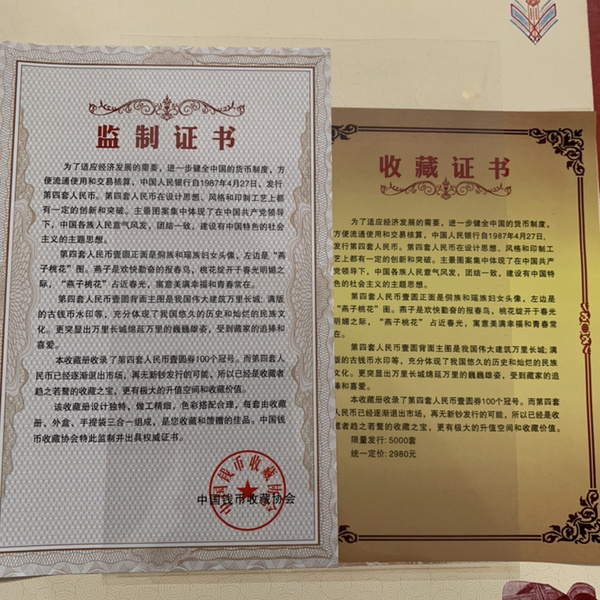 监制证书
为了适应经济发展的需要，进一步健全中国的货币制度，方
便流通使用和交易核算，中国人民银行自1987年4月27日，发行
第四套人民币。第四套人民币在设计思想、风格和印制工艺上
都有一定的创新和突破。主景图案集中体现了在中国共产党领导
下，中国各族人民意气风发，团结一致，建设有中国特色的社会
主义的主题思想。
第四套人民币壹圆正面是侗族和瑶族妇女头像，左边是“燕
子桃花”图。燕子是欢快勤奋的报春鸟，桃花绽开于春光明媚之
际，“燕子桃花”占近春光，寓意美满幸福和青春常在。
第四套人民币壹圆背面主图是我国伟大建筑万里长城；满版
的古钱币水印等，充分体现了我国悠久的历史和灿烂的民族文
化。更突显出万里长城绵延万里的巍巍雄姿，受到藏家的追捧和
喜爱。
本收藏册收录了第四套人民币壹圆券100个冠号。而第四套人
民币已经逐渐退出市场，再无新钞发行的可能，所以已经是收藏者
趋之若鹜的收藏之宝，更有极大的升值空间和收藏价值。
该收藏册设计独特，做工精细，色彩搭配合理，每套由收藏
册、外盒、手提袋三合一组成，是您收藏和馈赠的佳品。中国钱
币收藏协会特此监制并出具权威证书。
中国钱币收藏协会
中国钱币收藏协会
收藏证书
为了适应经济发展的需要，进一步健全中国的货币制度，
方便流通使用和交易核算，中国人民银行自1987年4月27日，
发行第四套人民币。第四套人民币在设计思想、风格和印制工
艺上都有一定的创新和突破。主景图案集中体现了在中国共产
党领导下，中国各族人民意气风发，团结一致，建设有中国特
色的社会主义的主题思想。
第四套人民币壹圆正面是侗族和瑶族妇女头像，左边是
“燕子桃花”图。燕子是欢快勤奋的报春鸟，桃花绽开于春光
明媚之际，“燕子桃花”占近春光，寓意美满幸福和青春常
在。
第四套人民币壹圆背面主图是我国伟大建筑万里长城；满
版的古钱币水印等，充分体现了我国悠久的历史和灿烂的民族
文化。更突显出万里长城绵延万里的巍巍雄姿，受到藏家的追
捧和喜爱。
本收藏册收录了第四套人民币壹圆券100个冠号。而第四套
人民币已经逐渐退出市场，再无新钞发行的可能，所以已经是收
藏者趋之若鹜的收藏之宝，更有极大的升值空间和收藏价值。
限量发行：5000套
统一定价：2980元